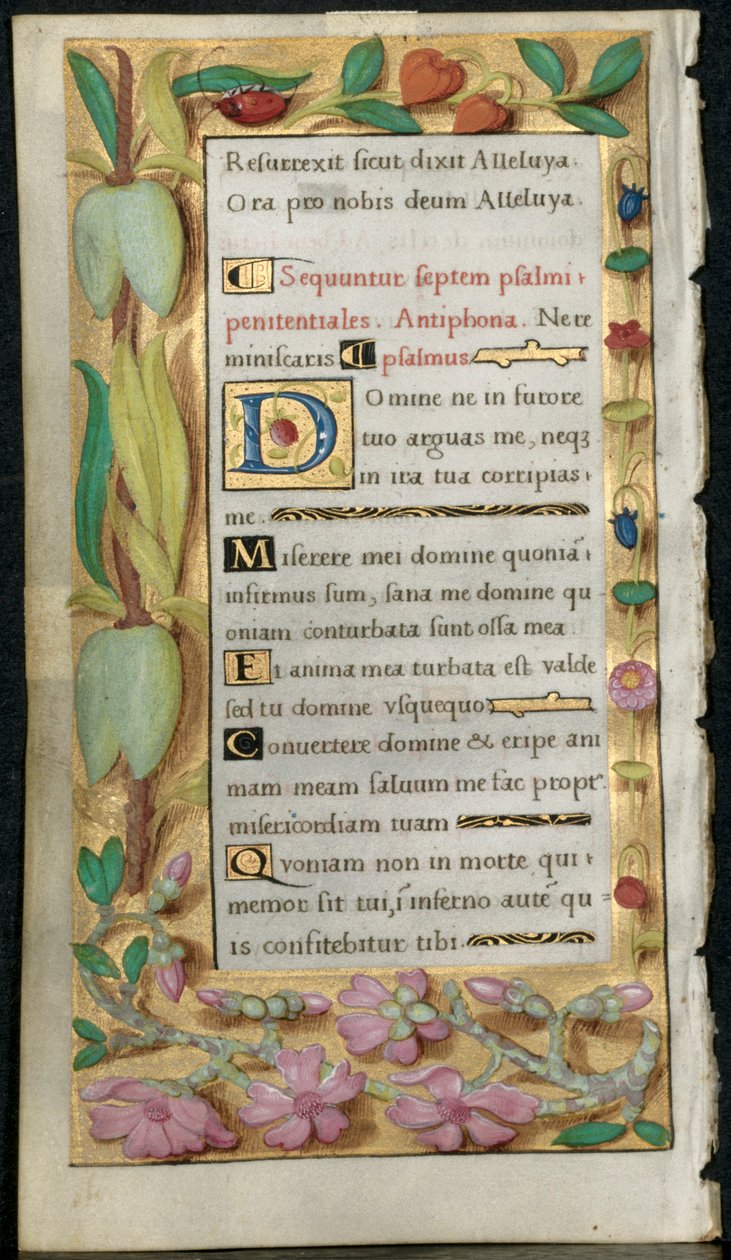 Reſurrexit ſicut dixit Alleluya.
Ora pro nobis deum Alleluya.
Sequuntur ſeptem pſalmi
penitentiales. Antiphona. Nere
miniſcaris pſalmus
Domine ne in furore
tuo arguas me, neqꝫ
in ira tua corripias
me.
Miſerere mei domine quoniā
infirmus ſum, ſana me domine qu-
oniam conturbata ſunt oſſa mea
Et anima mea turbata eſt valde
ſed tu domine vſquequo
Conuertere domine & eripe ani
mam meam ſaluum me fac propt᷑.
miſericordiam tuam
Quoniam non in morte qui
memor ſit tui, ī inferno autē qu=
is confitebitur tibi.